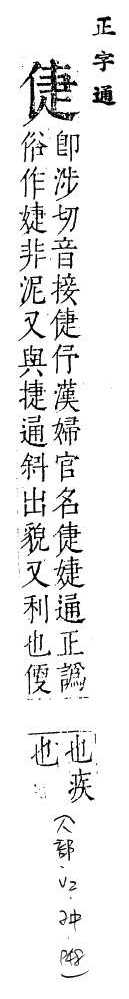 正字通
倢
卽涉切音接倢伃漢婦官名倢婕通正譌
俗作婕非泥又與捷通斜出貌又利也便
也疾
也
(人部